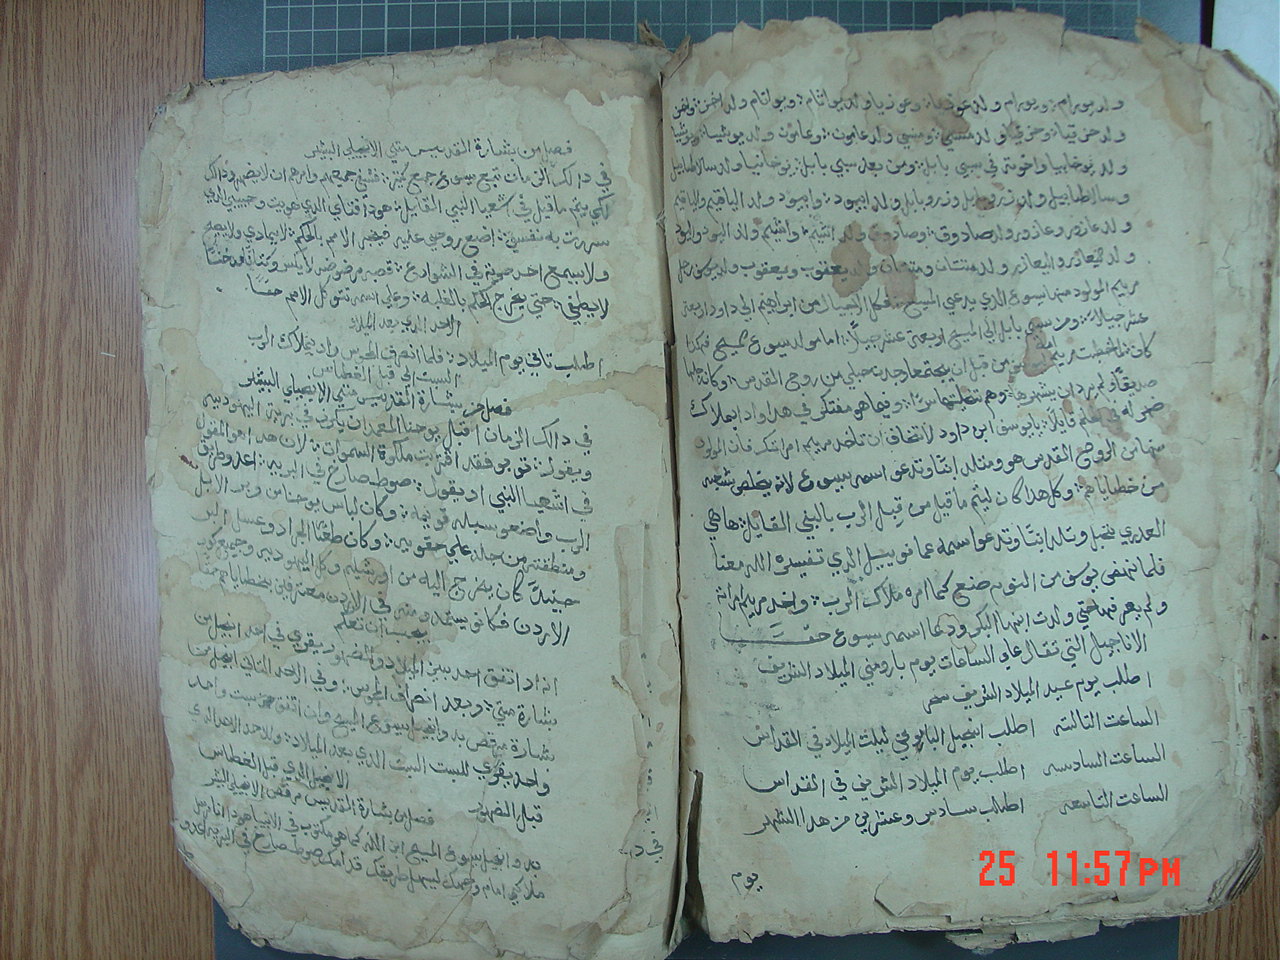 ولد يورام: ويورام ولد عوزيا: وعوزيا ولد يواثام: ويواثام ولد احاز: واحاز
ولد حزقيا: وحزقيا ولد منسي: ومنسي ولد عامون: وعامون ولد يوشيا: يوشيا
ولد يوخانيا واخوته في سبي بابل: ومن بعد سبي بابل: يوخانيا ولد سالاطاييل
وسالاطاييل ولد زروبابل وزروبابل ولد ابيود: وابيود ولد الياقيم والياقيم
ولد عازور وعازور ولد صادوق: وصادوق ولد اشيم: واشيم ولد اليود واليود
ولد اليعازر واليعازر ولد متتان ومتتان ولد يعقوب ويعقوب ولد يوسف رجل
مريم المولود منها يسوع الذي يدعي المسيح: فكل الاجيال من ابراهيم الي داود اربعة
عشر جيالا: ومن سبي بابل الي المسيح اربعة عشر جيلا: اما مولد يسوع المسيح فهكذا
كان: لما خطبت مريم امه من قبل ان يجتمعا وجدت حبلي من روح القدس: وكان
صديقا ولم يرد ان يشهرها: وهم بتخليتها سرا: وفيما هو مفتكر في هذا واذ بملاك
ظهر له في الحلم قايلا: يا يوسف ابن داود لا تخاف ان تاخد مريم امراتك فان المولود
منها من الروح القدس هو وستلد ابنا وتدعو اسمه يسوع لانه يخلص شعبه
من خطاياهم: وكل هدا كان ليتم ما قيل من قبل الرب بالنبي القايل: ها هي
العدري تحبل وتلد ابنا وتدعو اسمه عمانوييل الذي تفسيره الله معنا
فلما نهض يوسف من النوم صنع كما امره ملاك الرب: واخد مريم امراته
ولم يعرفها حتي ولدت ابنها البكر ودعا اسمه يسوع حقا
الاناجيل التي تقال علي الساعات يوم بارمني الميلاد الشريف
اطلب يوم عيد الميلاد الشريف سحر
الساعت التالته اطلب انجيل البارموني لليلت الميلاد في القداس
الساعت السادسه اطلب يوم الميلاد الشريف في القداس
الساعت التاسعه اطلب سادس وعشرين من هدا الشهر
يوم
فصل من بشارة القديس متي الانجيلي البشير
في دالك الزمان تبع يسوع جمع كثير: فشفي جميعهم وامرهم ان لا يفضحوه ودالك
لكي يتم ما قيل في اشعيا النبي القايل: هودا فتاي الدي هويت وحبيبي الدي
سرت به نفسي: اضع روحي عليه فيخبر الامم بالحكم: لا يماري ولا يصيح
ولا يسمع احد صوته في الشوارع: قصبه مرضوضه لا يكسر وكتانا مدخنا
لا يطفي: حتي يخرج الحكم بالغلبه: وعلي اسمه تتوكل الامم حقا
الاحد الدي بعد الميلاد
اطلب تاني يوم الميلاد: فلما انصرف المجوس واد بملاك الرب
السبت الي قبل الغطاس
فصل من بشارة القديس متي الانجيلي البشير
في دالك الزمان اقبل يوحنا المعمدان يكرز في برية اليهوديه
ويقول: توبو فقد اقتربت ملكوة السموات: لان هدا هو المقول
في اشعيا النبي اد يقول: صوط صارخ في البريه: اعدو طريق
الرب واصنعو سبيله قويمه: وكان لباس يوحنا من وبر الابل
ومنطقته من جلد علي حقويه: وكان طعامه الجراد وعسل البر
حينيد كان يخرج اليه من اورشليم وكل اليهوديه وجميع كور
الاردن فكانو يعتمدو منه في الاردن معترفين بخطاياهم حقا
يجب ان تعلم
اد اد اتفق احد بين الميلاد والضهور يقري في احد انجيل من
بشارة متي: وبعد انصراف المجوس: وفي الاحد التاني انجيل من
بشارة مرقص بدو انجيل يسوع المسيح وان اتفق سبت واحد
واحد يقري للسبت السبت الدي بعد الميلاد: وللاحد الاحد الدي
قبل الضهور الانجيل الدي قبل الغطاس
فصل من بشارة القديس مرقص الانجيلي البشير
بدو انجيل يسوع المسيح ابن الله كما هو مكتوب في الانبيا هودا انا مرسل
ملاكي امام وجهك ليسهل طريقك قدامك صوط صارخ في البريه اعدو
25 11:57PM